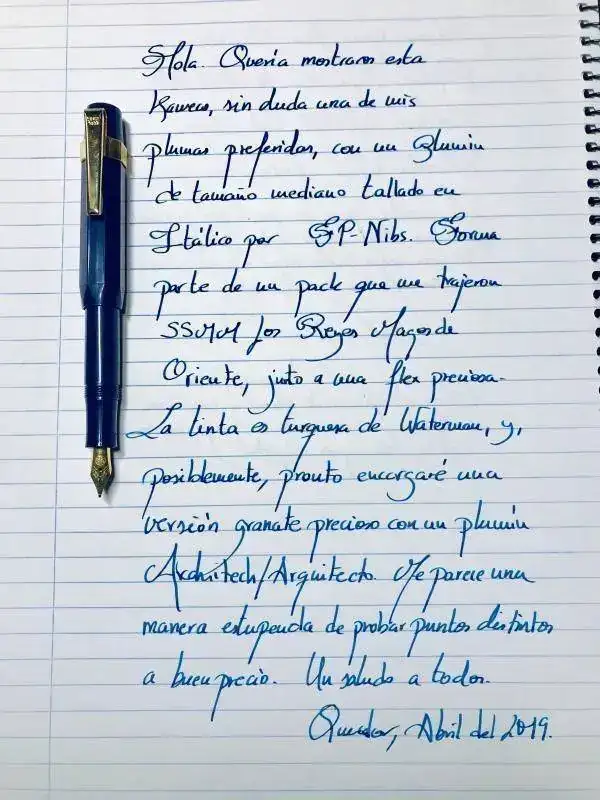 Hola. Quería mostraros esta
Kaweco, sin duda una de mis
plumas preferidas, con un plumín
de tamaño mediano tallado en
Itálico por FP-Nibs. Forma
parte de un pack que me trajeron
SSMM los Reyes Magos de
Oriente, junto a una flex preciosa.
La tinta es turquesa de Waterman, y,
posiblemente, pronto encargaré una
versión granate precioso con un plumín
Architech/Arquitecto. Me parece una
manera estupenda de probar puntos distintos
a buen precio. Un saludo a todos.
Abril del 2019.